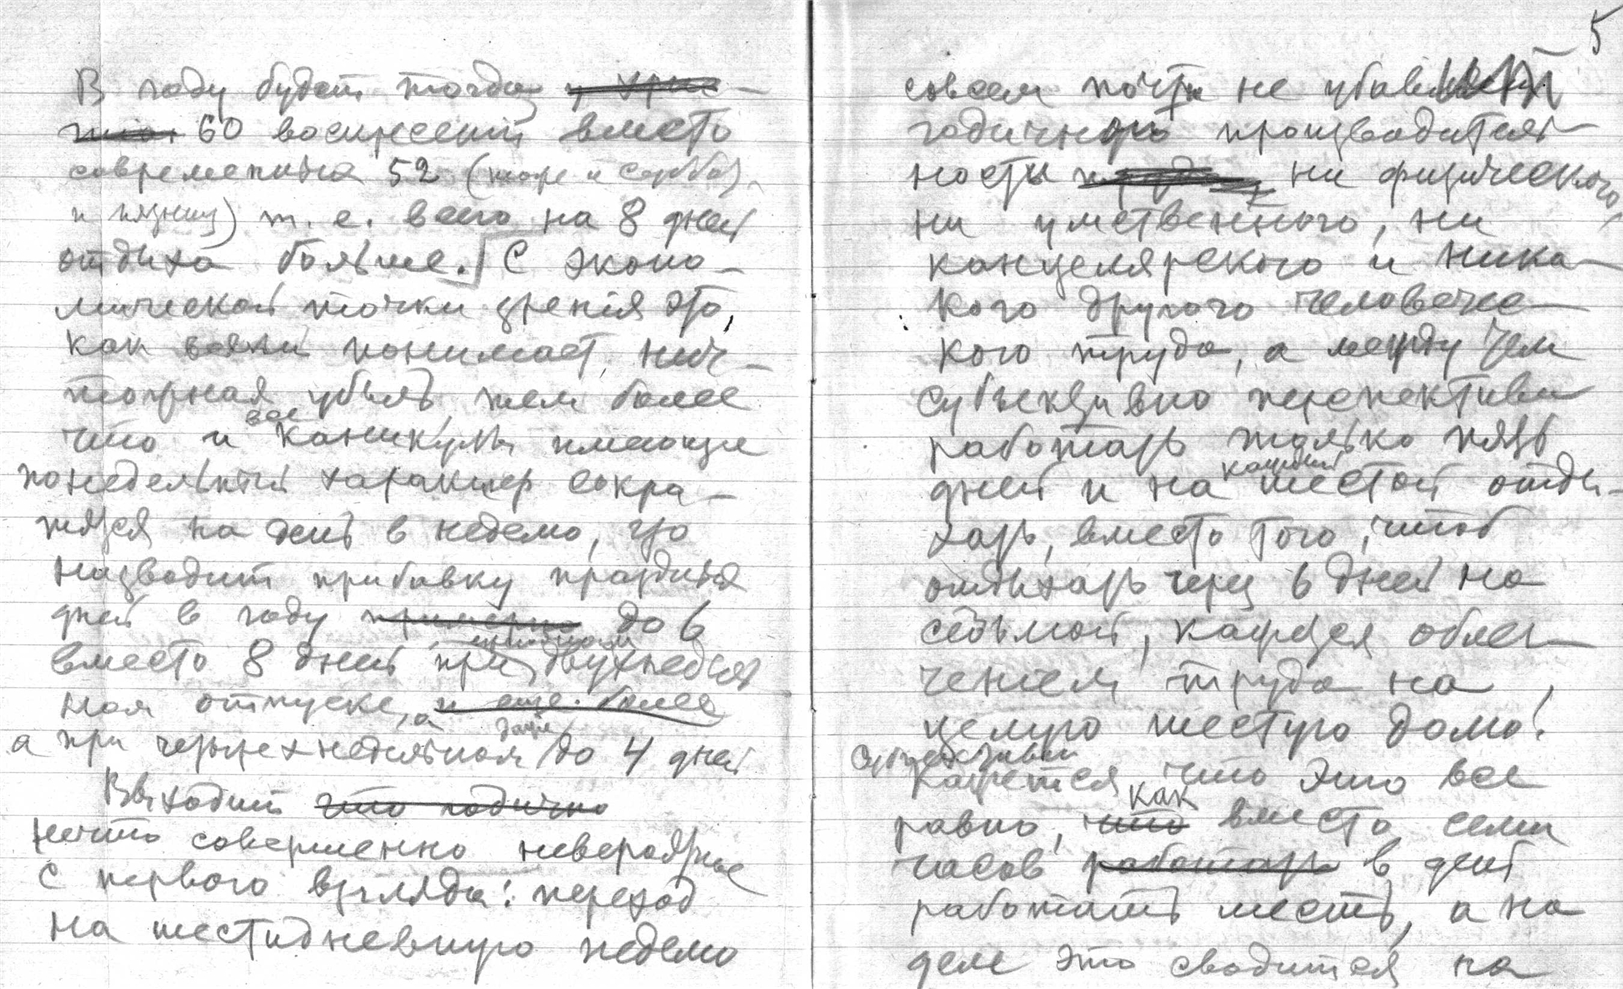 В году будет тогда у хрис-
тиан 60 воскресений вместо
современных 52 (тоже и суббот
и пятниц) т. е. всего на 8 дней
отдыха больше. С эконо-
мической точки зрения это,
как понимает, нич-
тожная убыль, тем более
что и все каникулы имеющие
понедельный характер сокра-
тятся на день в неделю, что
низводит прибавку праздных
дней в году примерно до 6
вместо 8 дней при двухнедель
ном отпуске, и еще более
а при четырехнедельном даже до 4 дней
Выходит что годично
нечто совершенно невероятное
с первого взгляда: переход
на шестидневную неделю
5
совсем почти не убавит
годичной производитель-
ности ни физического,
ни умственного, ни
канцелярского и ника-
кого другого человече-
кого труда, а между тем
субъективно перспектива
работать только пять
дней и на каждый шестой отды-
хать, вместо того, чтоб
отдыхать через 6 дней на
седьмой, кажется облег-
чением труда на
целую шестую долю!
Субъективно
кажется, что это все
равно, что как вместо семи
часов работать в день
работать шесть, а на
деле это сводится на